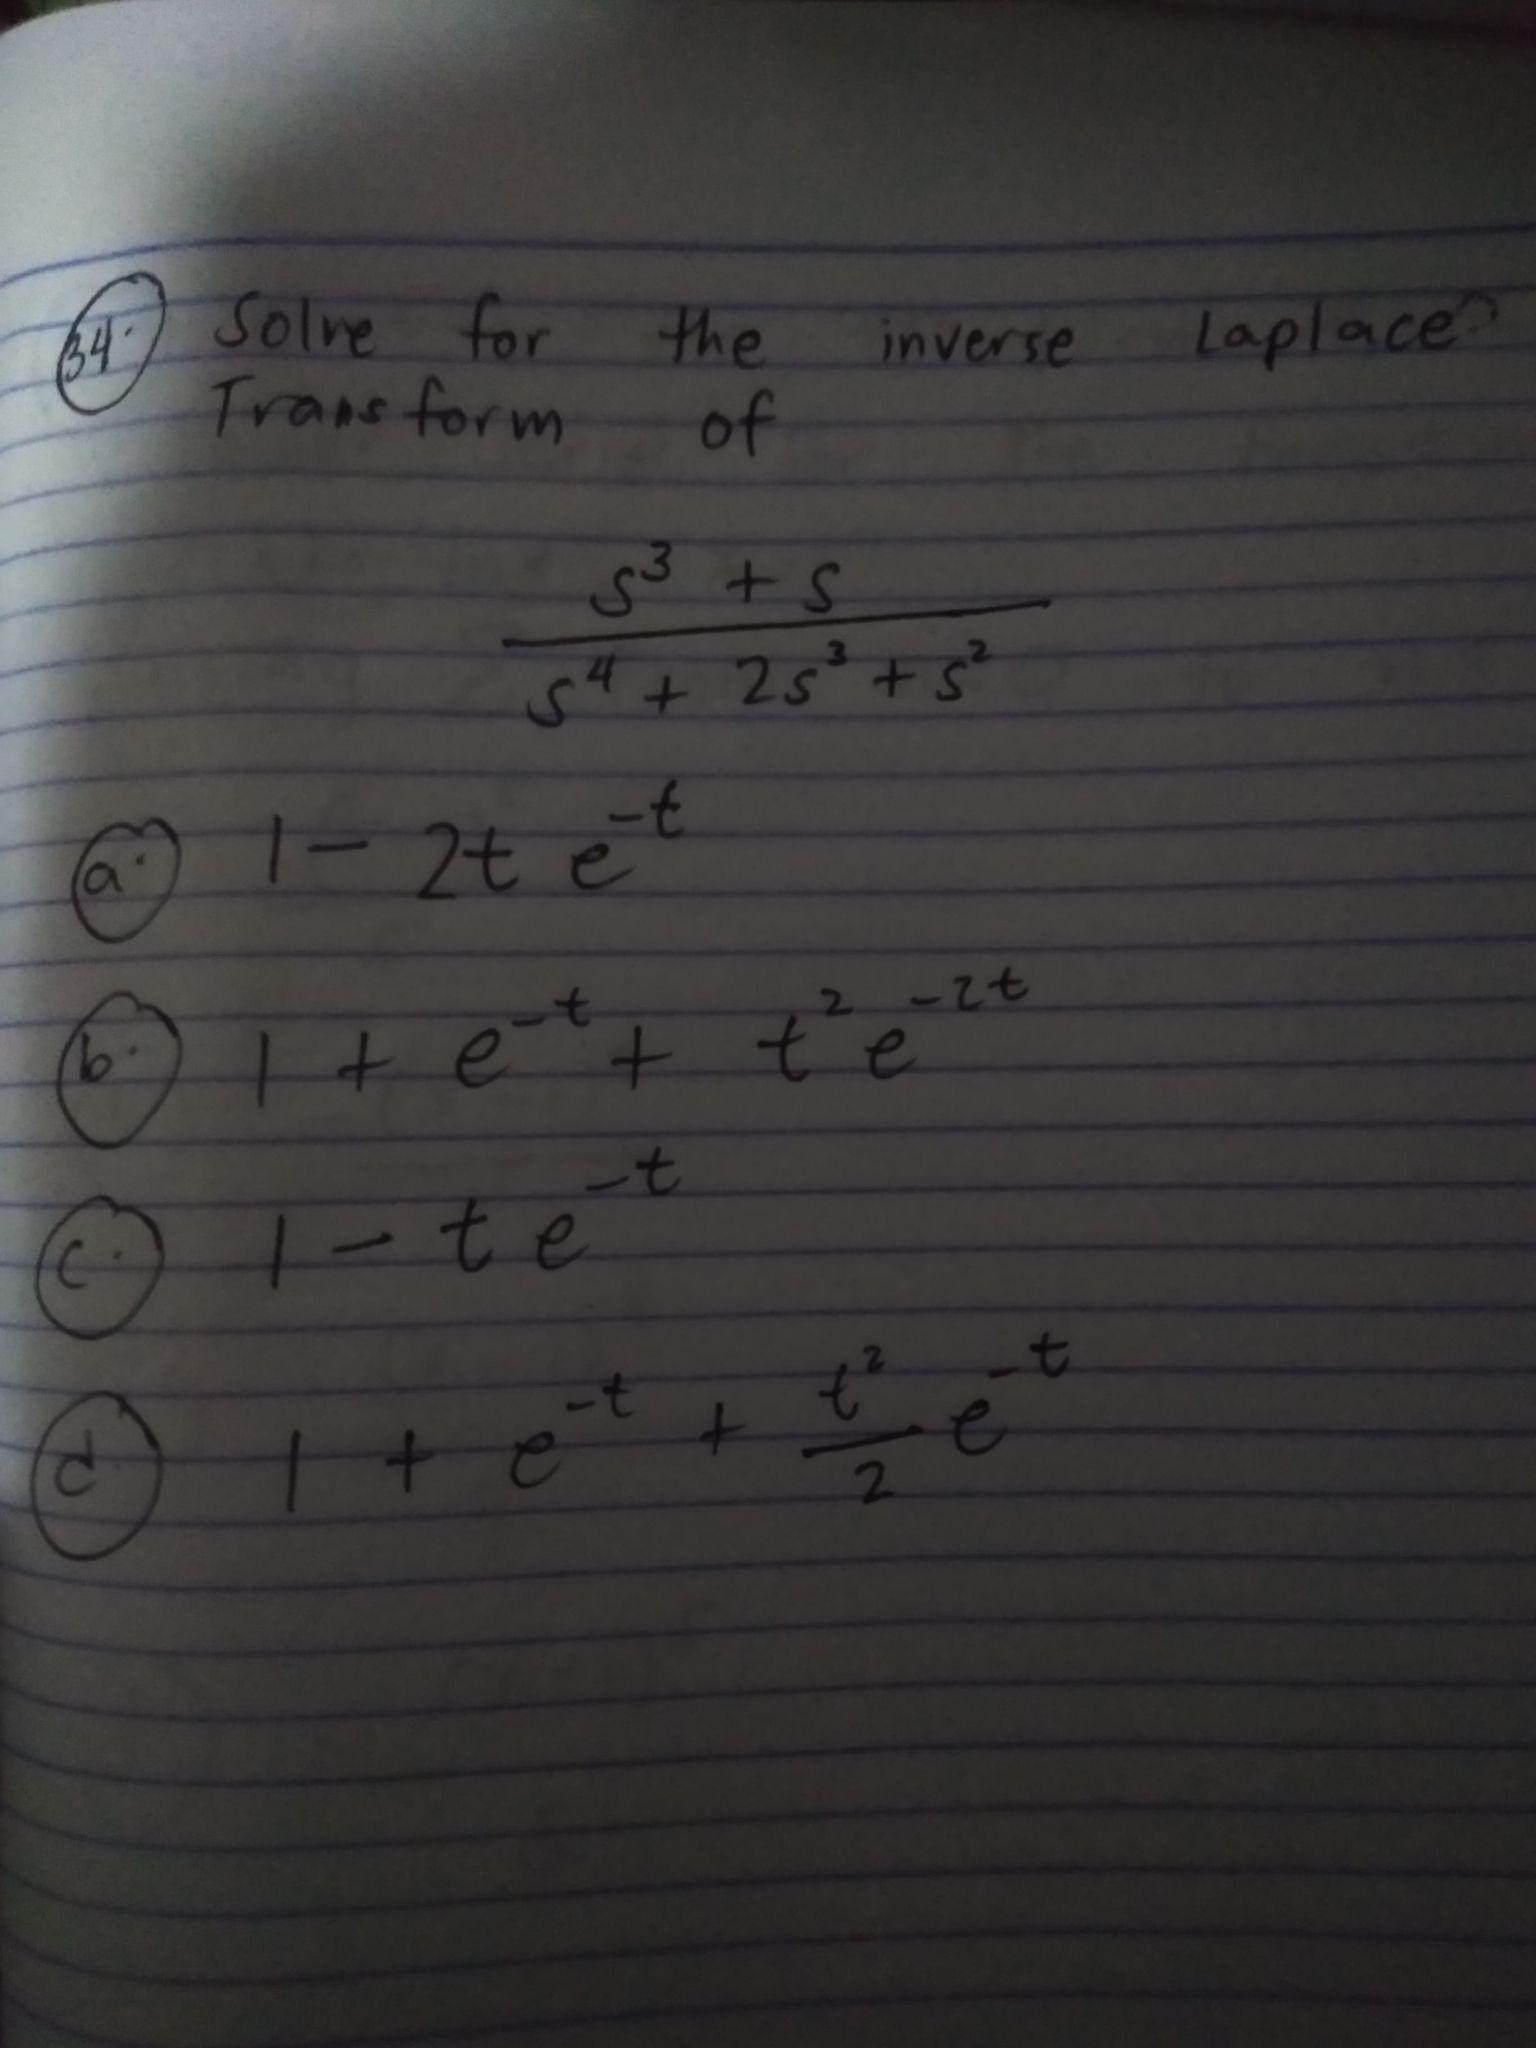 34. Solve for the inverse Laplace
Transform of
s³ + s
s⁴ + 2s³ + s²
a. 1 - 2t e⁻ᵗ
b. 1 + e⁻ᵗ + t² e⁻²ᵗ
c. 1 - t e⁻ᵗ
d 1 + e⁻ᵗ + t²/2 e⁻ᵗ